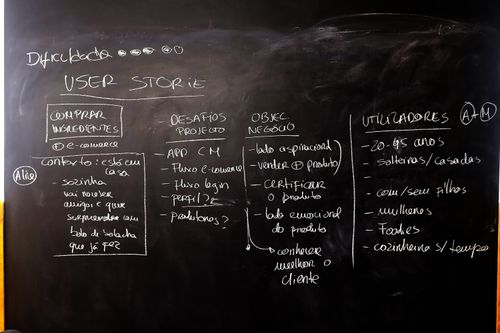 Dificuldade
USER STORIE
COMPRAR
INGREDIENTES
e-comerce
Contexto: está em
casa
- sozinha
vai receber
amigos e quer
surpreender com
bolo de bolacha
que já fez
- DESAFIOS
PROJECTO
- APP CM
- Fluxo e-comerce
- Fluxo login
- PERFIL?
- produtores?
OBJEC.
NEGÓCIO
- lado aspiracional
- vender + produto
- CERTIFICAR
O produto
- lado emocional
do produto
- conhecer
melhor o
cliente
UTILIZADORES
A+M
- 20-45 anos
- solteiras/casadas
- com/sem filhos
- mulheres
- Foodies
- cozinheira s/ tempo